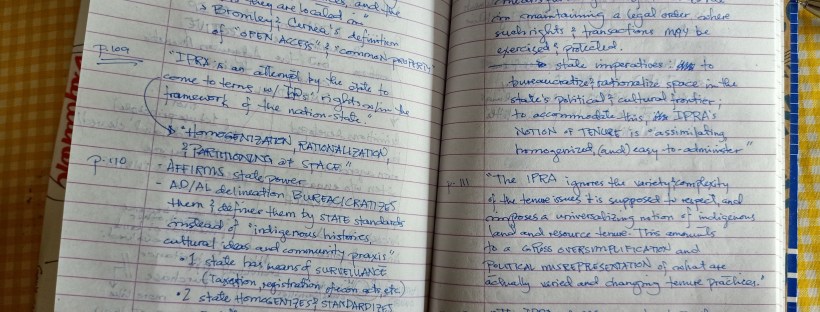 they are localized on"
> Bromley & Cernea's definition
of "OPEN ACCESS" & "COMMON-PROPERTY"
p. 109
"IPRA is an attempt by the state to
come to terms w/ IPs' rights w/in the
framework of the nation-state"
"HOMOGENIZATION, RATIONALIZATION,
& PARTITIONING of SPACE"
p. 110
- AFFIRMS state power
- AD/AL delineation BUREACICRATIZES
them & defines them by STATE standards
instead of "indigenous histories,
cultural ideas and community praxis"
• 1 state has means of SURVEILLANCE
(Taxation, registration of econ acts, etc)
• 2 state HOMOGENIZES & STANDARDIZES
on maintaining a legal order where
such rights & transactions may be
exercised & protected.
state imperatives: to
bureaucratize & rationalize space in the
state's political & cultural frontier;
to accommodate this, IPRA's
NOTION OF TENURE is "assimilating,
homogenized, (and) easy-to-administer"
p. 111
"The IPRA ignores the variety & complexity
of the tenure issues it is supposed to respect, and
imposes a universalizing notion of indigenous
land and resource tenure. This amounts
to a GROSS OVERSIMPLIFICATION and
POLITICAL MISREPRESENTATION of what are
actually varied and changing tenure practices."